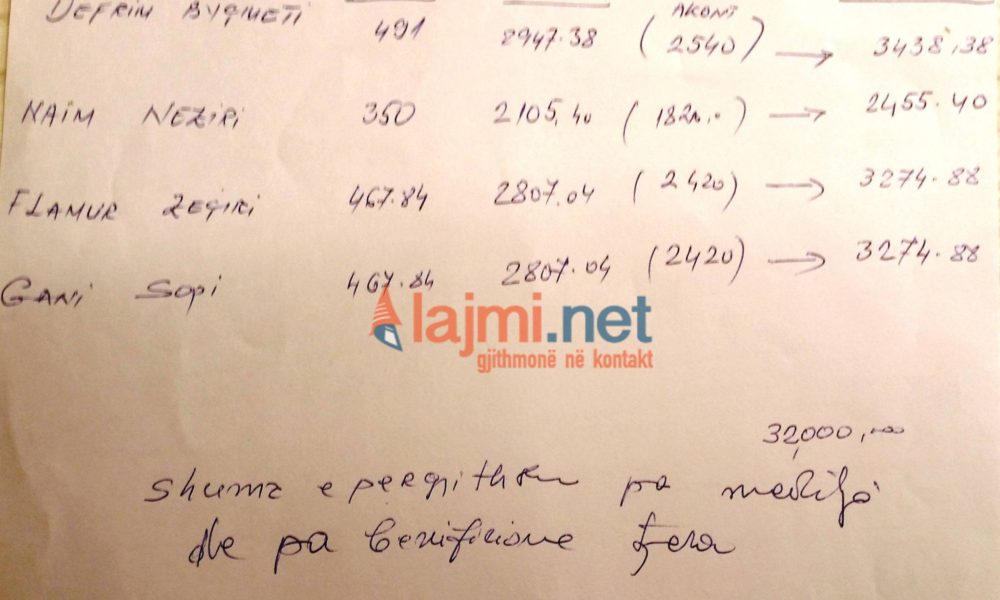 DEFRIM BYQMETI 491 2947.38 (AKONT 2540) → 3438,38
NAIM NEZIRI 350 2105,40 ( ) → 2455.40
FLAMUR ZEQIRI 467.84 2807.04 (2420) → 3274.88
GANI SOPI 467.84 2807.04 (2420) → 3274.88
lajmi.net
gjithmonë në kontakt
32,000,
shuma e pergjithshme pa meditje
dhe pa benificione tjera